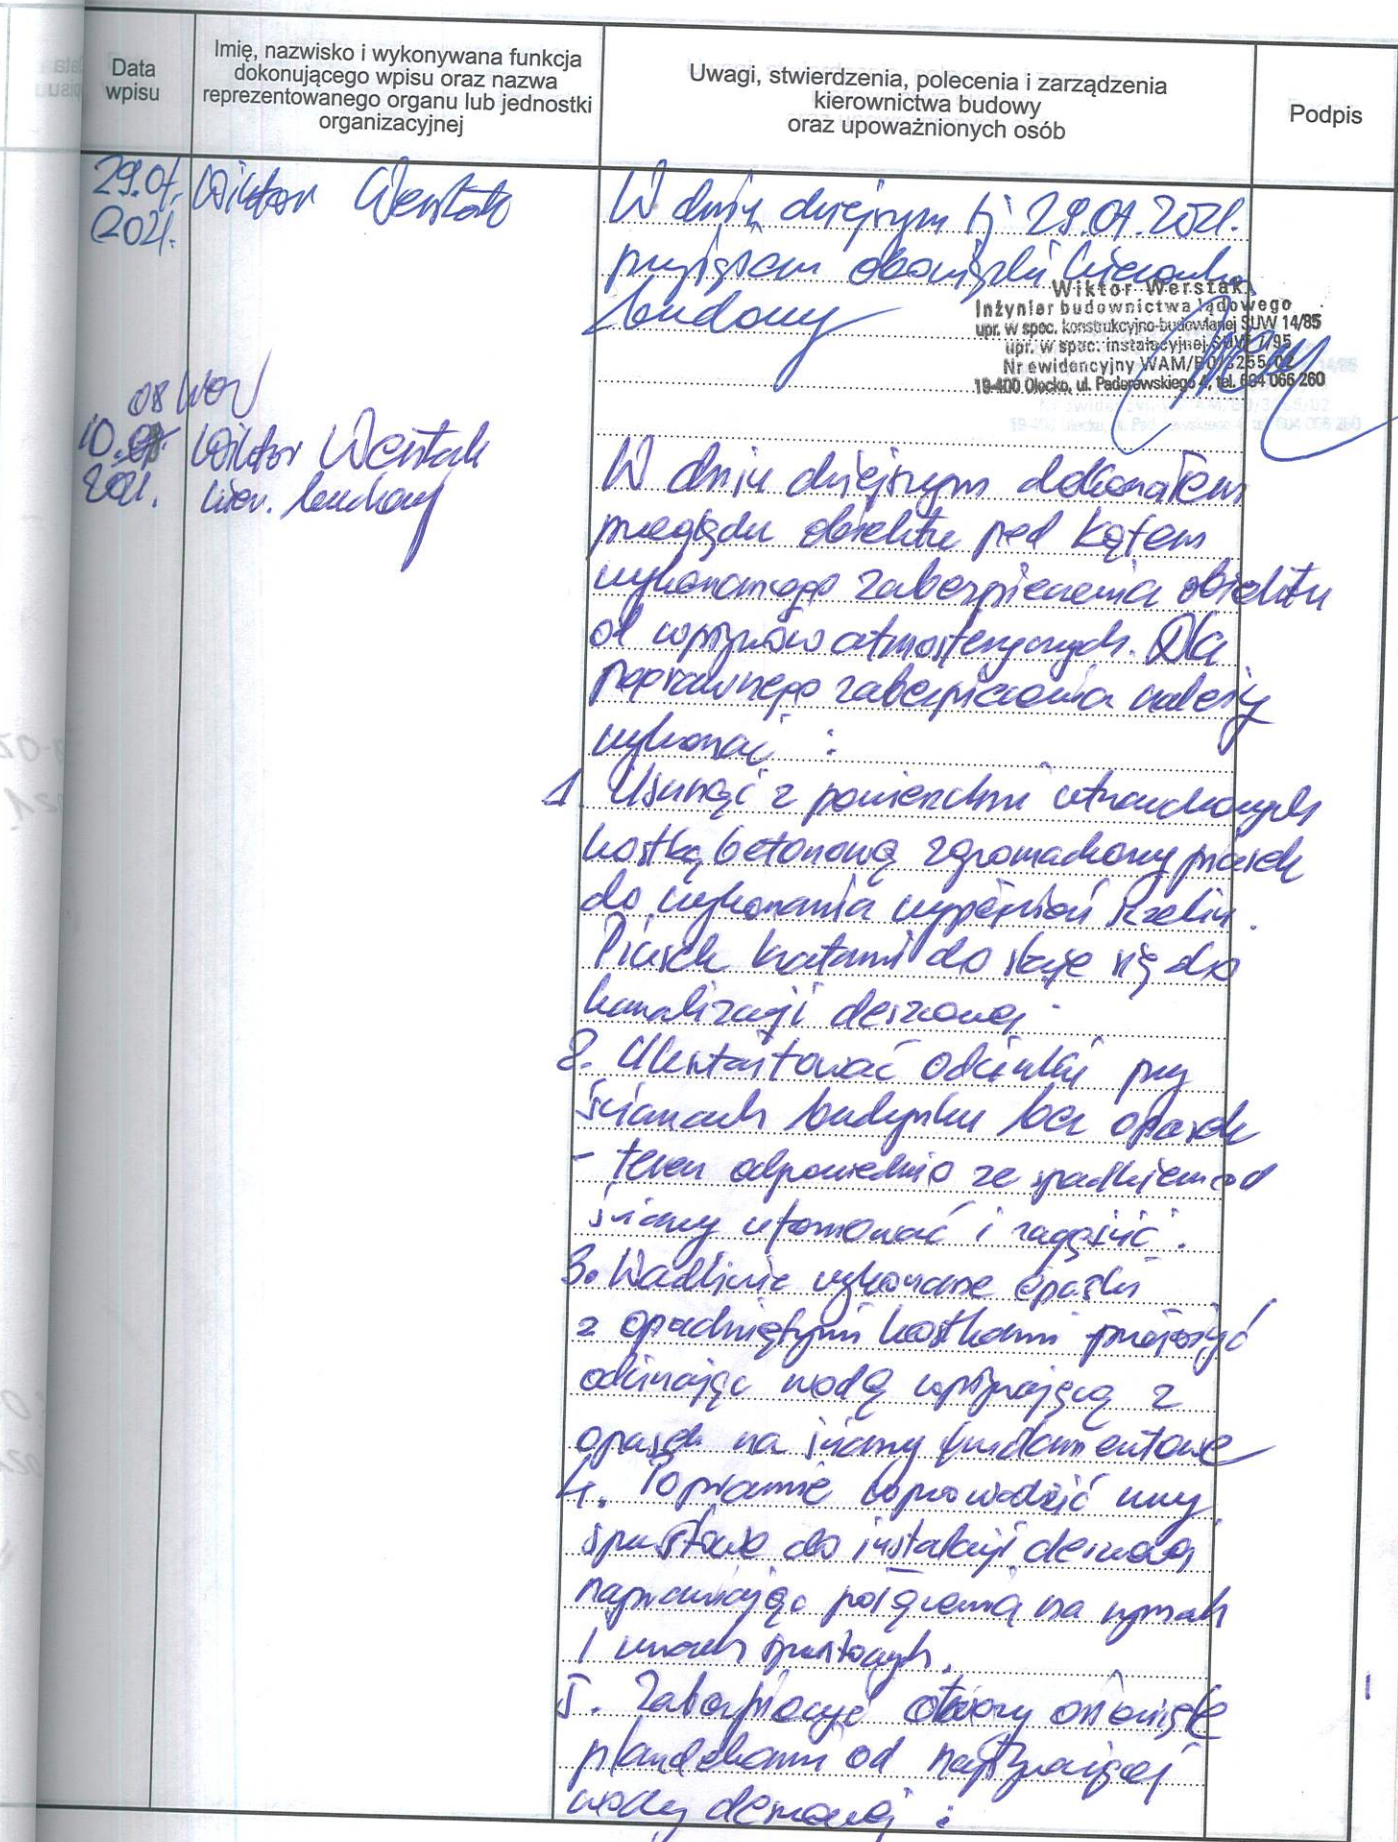 Data
wpisu
Imię, nazwisko i wykonywana funkcja
dokonującego wpisu oraz nazwa
reprezentowanego organu lub jednostki
organizacyjnej
Uwagi, stwierdzenia, polecenia i zarządzenia
kierownictwa budowy
oraz upoważnionych osób
Podpis
29.07.
2021.
Wiktor Werstak
W dniu dzisiejszym tj 29.07.2021.
przyjąłem obowiązki kierownika
budowy
Wiktor Werstak
Inżynier budownictwa lądowego
upr. w spec. konstrukcyjno-budowlanej SUW 14/85
upr. w spec. instalacyjnej
Nr ewidencyjny WAM/BO/3255/02
19-400 Olecko, ul. Paderewskiego 4, tel. 604 066 260
08
10.07.
2021.
Wiktor Werstak
kier. budowy
W dniu dzisiejszym dokonałem
przeglądu obiektu pod kątem
wykonanego zabezpieczenia obiektu
od wpływów atmosferycznych. Dla
poprawnego zabezpieczenia należy
wykonać :
1. Usunąć z powierzchni utwardzonych
kostką betonową zgromadzony piasek
do wykonania wypełnień szczelin.
Piasek kratami do staje się do
kanalizacji deszczowej.
2. Ukształtować odcinki przy
ścianach budynku bez opasek
- teren odpowiednio ze spadkiem od
ściany uformować i zagęścić.
3. Wadliwie wykonane opaski
z opadniętymi kostkami przełożyć
odcinając wodę wpływającą z
opasek na ściany fundamentowe
4. Poprawnie wprowadzić rury
spustowe do instalacji deszczowej
naprawiając połączenia na rynnach
i rurach spustowych.
5. Zabezpieczyć otwory okienne
plandekami od napływającej
wody deszczowej :